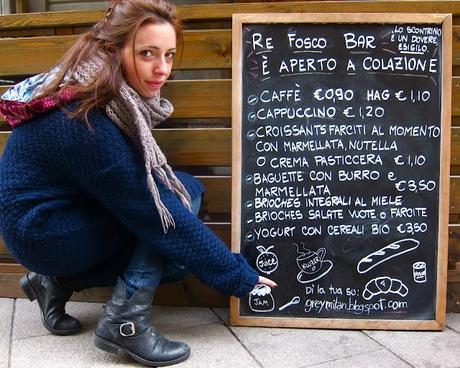 RE FOSCO BAR
LO SCONTRINO
È UN DOVERE,
ESIGILO.
È APERTO A COLAZIONE
CAFFÈ €0,90 HAG €1,10
CAPPUCCINO €1,20
CROISSANTS FARCITI AL MOMENTO
CON MARMELLATA, NUTELLA
O CREMA PASTICCERA €1,10
BAGUETTE CON BURRO E
MARMELLATA €3,50
BRIOCHES INTEGRALI AL MIELE
BRIOCHES SALATE VUOTE O FARCITE
YOGURT CON CEREALI BIO €3,50
JUICE
JAM
DÌ LA TUA SU:
greymilan.blogspot.com